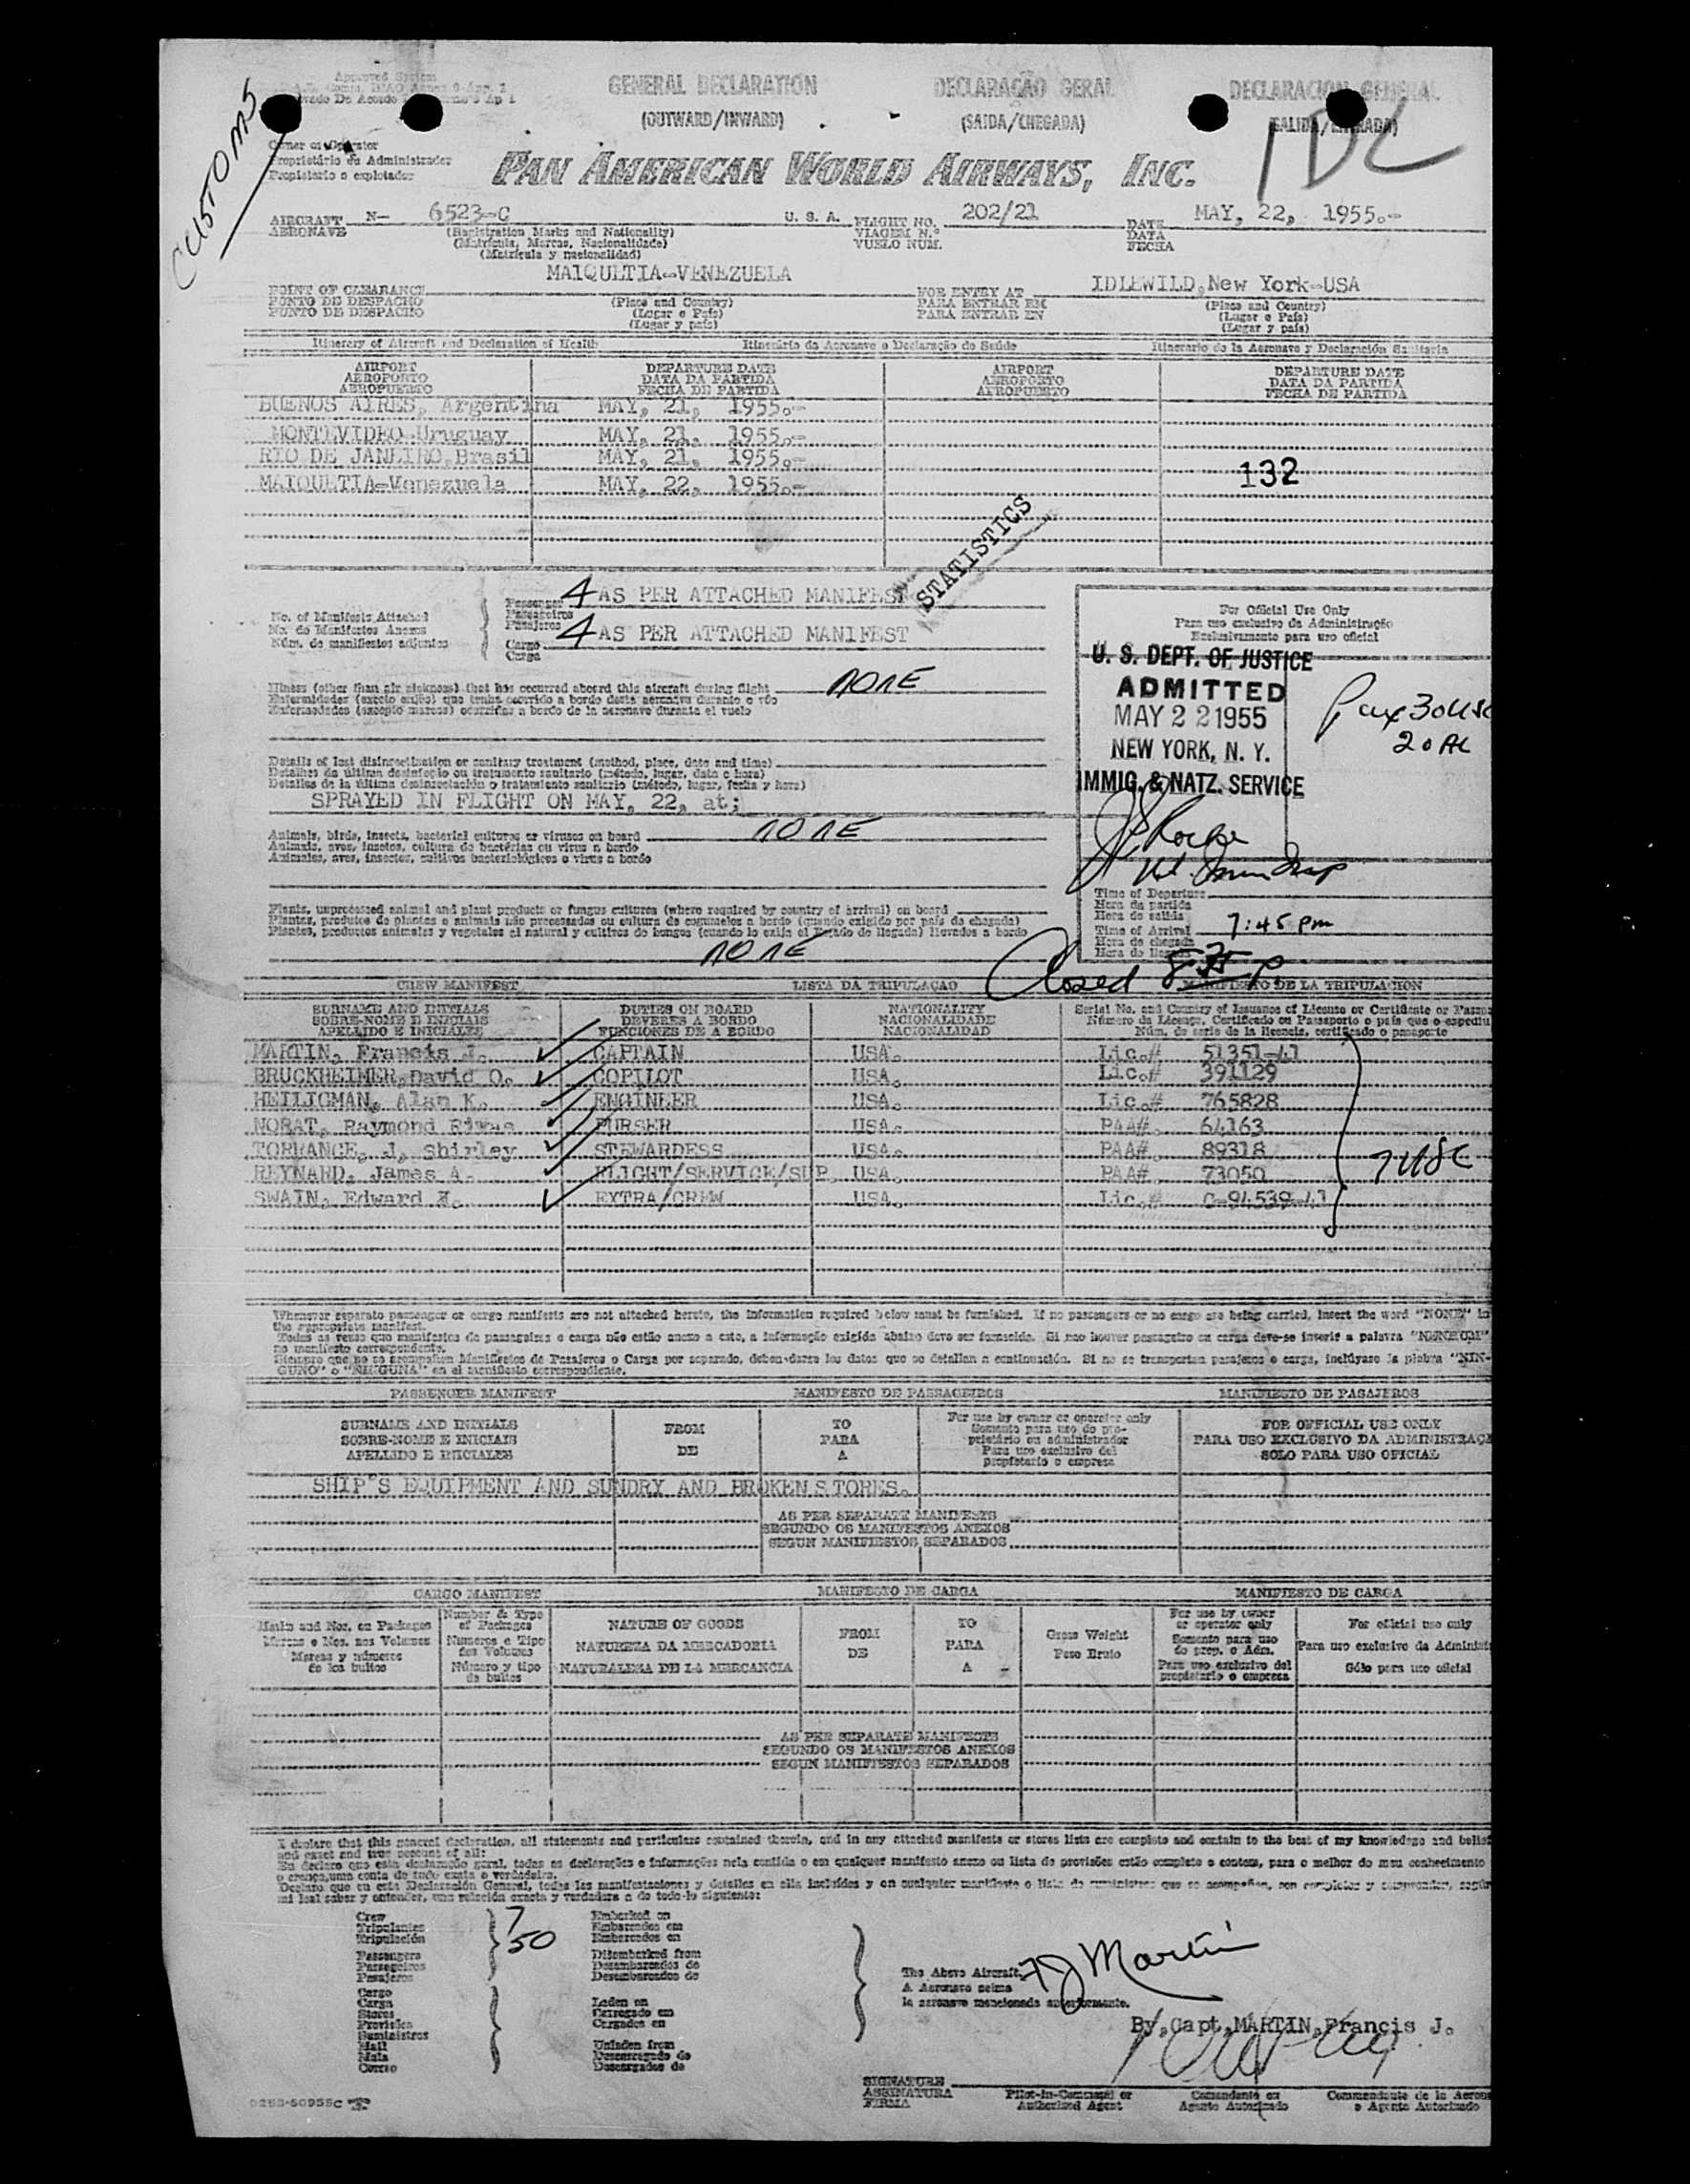 CUSTOMS
Approved System
GENERAL DECLARATION
(OUTWARD/INWARD)
DECLARAÇÃO GERAL
(SAIDA/CHEGADA)
DECLARACION GENERAL
1DC
Owner or Operator
Proprietário ou Administrador
Propietario o explotador
PAN AMERICAN WORLD AIRWAYS, INC.
AIRCRAFT N- 6523-C U. S. A. FLIGHT NO. 202/21 DATE MAY, 22, 1955.-
AERONAVE (Registration Marks and Nationality) VIAGEM N.º DATA
(Matrícula, Marcas, Nacionalidade) VUELO NUM. FECHA
(Matrícula y nacionalidad)
MAIQUETIA-VENEZUELA IDLEWILD, New York-USA
POINT OF CLEARANCE (Place and Country) FOR ENTRY AT (Place and Country)
PONTO DE DESPACHO (Lugar e País) PARA ENTRAR EM (Lugar e País)
PUNTO DE DESPACHO (Lugar y país) PARA ENTRAR EN (Lugar y país)
Itinerary of Aircraft and Declaration of Health Itinerário da Aeronave e Declaração de Saúde Itinerario de la Aeronave y Declaración Sanitaria
AIRPORT DEPARTURE DATE AIRPORT DEPARTURE DATE
AEROPORTO DATA DA PARTIDA AEROPORTO DATA DA PARTIDA
AEROPUERTO FECHA DE PARTIDA AEROPUERTO FECHA DE PARTIDA
BUENOS AIRES, Argentina MAY, 21, 1955.-
MONTEVIDEO-Uruguay MAY, 21, 1955.-
RIO DE JANEIRO,Brasil MAY, 21, 1955.-
MAIQUETIA-Venezuela MAY, 22, 1955.-
132
STATISTICS
No. of Manifests Attached
No. de Manifestos Anexos
Núm. de manifiestos adjuntos
Passenger 4 AS PER ATTACHED MANIFEST
Passageiros
Pasajeros
Cargo 4 AS PER ATTACHED MANIFEST
Carga
For Official Use Only
Para uso exclusivo da Administração
Exclusivamente para uso oficial
U. S. DEPT. OF JUSTICE
ADMITTED
MAY 22 1955
NEW YORK, N. Y.
IMMIG. & NATZ. SERVICE
Pax 30 USC
20 AL
Illness (other than air sickness) that has occurred aboard this aircraft during flight NONE
Enfermidades (exceto enjôo) que tenha ocorrido a bordo desta aeronave durante o vôo
Enfermedades (excepto mareos) ocurridas a bordo de la aeronave durante el vuelo
Details of last disinsectization or sanitary treatment (method, place, date and time)
Detalhes da última desinfeção ou tratamento sanitario (método, lugar, data e hora)
Detalles de la última desinsectación o tratamiento sanitario (método, lugar, fecha y hora)
SPRAYED IN FLIGHT ON MAY, 22, at;
Animals, birds, insects, bacterial cultures or viruses on board NONE
Animais, aves, insetos, cultura de bactérias ou virus a bordo
Animales, aves, insectos, cultivos bacteriológicos o virus a bordo
Plants, unprocessed animal and plant products or fungus cultures (where required by country of arrival) on board
Plantas, produtos de plantas e animais não processados ou cultura de cogumelos a bordo (quando exigido por país de chegada)
Plantas, productos animales y vegetales al natural y cultivos de hongos (cuando lo exija el Estado de llegada) llevados a bordo
NONE
Time of Departure
Hora da partida
Hora de salida
Time of Arrival 7:45 pm
Hora de chegada
Closed 8:35 P
CREW MANIFEST LISTA DA TRIPULAÇAO MANIFIESTO DE LA TRIPULACION
SURNAME AND INITIALS DUTIES ON BOARD NATIONALITY Serial No. and Country of Issuance of License or Certificate or
SOBRE-NOME E INICIAIS DEVERES A BORDO NACIONALIDADE Número da Licença, Certificado ou Passaporte e país que o expediu
APELLIDO E INICIALES FUNCIONES DE A BORDO NACIONALIDAD Núm. de serie de la licencia, certificado o pasaporte
MARTIN, Francis J. CAPTAIN USA. Lic.# 51351-41
BRUCKHEIMER,David O. COPILOT USA. Lic.# 391129
HEILIGMAN, Alan K. ENGINEER USA. Lic.# 765828
NORAT, Raymond Rivas PURSER USA. PAA#. 64163
TORRANCE, J. Shirley STEWARDESS USA. PAA#. 89318
REYNARD, James A. FLIGHT/SERVICE/SUP. USA. PAA#. 73050
SWAIN, Edward H. EXTRA/CREW USA. Lic.# C-94539-41
7 USC
Whenever separate passenger or cargo manifests are not attached hereto, the information required below must be furnished. If no passengers or no cargo are being carried, insert the word "NONE" in
the appropriate manifest.
Todas as vezes que manifestos de passageiros e carga não estão anexo a este, a informação exigida abaixo deve ser fornecida. Si nao houver passageiro ou carga deve-se inserir a palavra "NENHUM"
no manifesto correspondente.
Siempre que no se acompañen Manifiestos de Pasajeros o Carga por separado, deben darse los datos que se detallan a continuación. Si no se transportan pasajeros o carga, inclúyase la plabra "NIN-
GUNO" o "NINGUNA" en el manifiesto correspondiente.
PASSENGER MANIFEST MANIFESTO DE PASSAGEIROS MANIFIESTO DE PASAJEROS
SURNAME AND INITIALS FROM TO For use by owner or operator only FOR OFFICIAL USE ONLY
SOBRE-NOME E INICIAIS DE PARA Somente para uso do pro-
prietário ou administrador PARA USO EXCLUSIVO DA ADMINISTRAÇA
APELLIDO E INICIALES A Para uso exclusivo del
propietario o empresa SOLO PARA USO OFICIAL
SHIP'S EQUIPMENT AND SUNDRY AND BROKEN STORES.
AS PER SEPARATE MANIFESTS
SEGUNDO OS MANIFESTOS ANEXOS
SEGUN MANIFIESTOS SEPARADOS
CARGO MANIFEST MANIFESTO DE CARGA MANIFIESTO DE CARGA
Marks and Nos. on Packages Number & Type of Packages NATURE OF GOODS FROM TO Gross Weight For use by owner or operator only For official use only
Marcas e Nos. nos Volumes Numeros e Tipo dos Volumes NATUREZA DA MERCADORIA DE PARA Peso Bruto Somente para uso do prop. o Adm. Para uso exclusivo da Administ
Marcas y números de los bultos Número y tipo de bultos NATURALEZA DE LA MERCANCIA A - Para uso exclusivo del propietario o empresa Sólo para uso oficial
AS PER SEPARATE MANIFESTS
SEGUNDO OS MANIFESTOS ANEXOS
SEGUN MANIFIESTOS SEPARADOS
I declare that this general declaration, all statements and particulars contained therein, and in any attached manifests or stores lists are complete and contain to the best of my knowledge and belief
and exact and true account of all:
Eu declaro que esta declaração geral, todas as declarações e informações nela contida o em qualquer manifesto anexo ou lista de provisões estão completo e contem, para o melhor do meu conhecimento
e crença,uma conta de tudo exata e verdadeira.
Declaro que en esta Declaración General, todas las manifestaciones y detalles en ella incluídos y en cualquier manifiesto o lista de suministros que se acompañen, son completos y comprenden, según
mi leal saber y entender, una relación exacta y verdadera a de todo lo siguiente:
Crew 7 Embarked on
Tripulantes Embarcados em
Tripulación Embarcados en
Passengers 50 Disembarked from
Passageiros Desembarcados de
Pasajeros Desembarcados de
Cargo
Carga Laden on
Stores Carregado em
Provisões Cargados en
Suministros
Mail Unladen from
Mala Descarregado de
Correo Descargados de
The Above Aircraft.
A Aeronave acima
la aeronave mencionada anteriormente.
FJ Martin
By,Capt,MARTIN,Francis J.
SIGNATURE
ASSINATURA Pilot-in-Command or Comandante ou Commandante de la Aerona
FIRMA Authorized Agent Agente Autorizado o Agente Autorizado